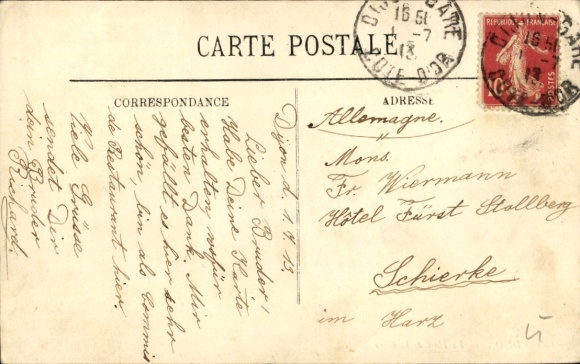 CARTE POSTALE
CORRESPONDANCE
Dijon d. 1.7.13.
Lieber Bruder!
Habe Deine Karte
erhalten, wofür
besten Dank. Mir
gefällt es hier sehr
schön, bin als Commis
de Restaurant hier.
Viele Grüsse
sendet Dir
dein Bruder
Richard.
ADRESSE
Allemagne.
Mons.
Fr. Wiermann
Hôtel Fürst Stollberg
Schierke
im Harz
DIJON GARE
16 50
1-7
13
COTE D'OR
RÉPUBLIQUE FRANÇAISE
POSTES
10
GARE
16 50
-7
13
COTE D'OR